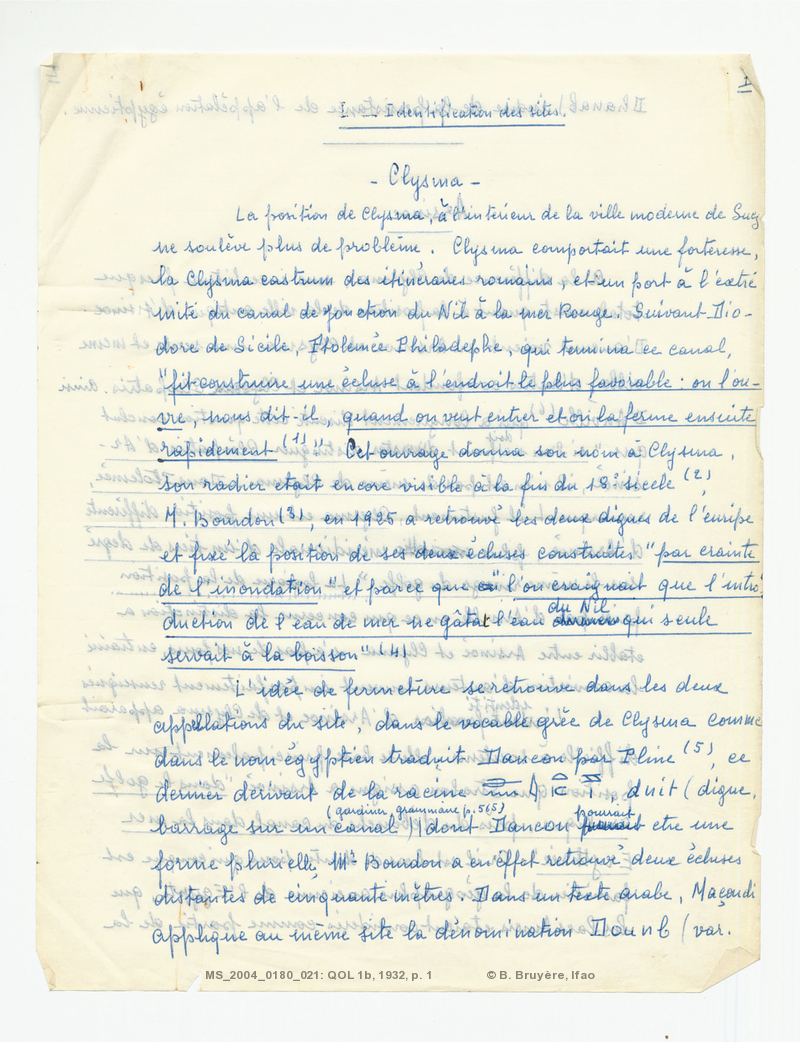 1
I - Identification des sites.
- Clysma -
La position de Clysma, à l'intérieur de la ville moderne de Suez
ne soulève plus de problème. Clysma comportait une forteresse,
la Clysma castrum des itinéraires romains, et un port à l'extré
mité du canal de jonction du Nil à la mer Rouge. Suivant Dio-
dore de Sicile, Ptolémée Philadephe, qui termina ce canal,
"fit construire une écluse à l'endroit le plus favorable: on l'ou-
vre, nous dit-il, quand on veut entrer et on la ferme ensuite
rapidement (1)". Cet ouvrage donna son nom à Clysma,
son radier etait encore visible à la fin du 18e siecle (2),
M. Bourdon (3), en 1925 a retrouvé les deux digues de l'euripe
et fixé la position de ses deux écluses construites "par crainte
de l'inondation" et parce que "l'on craignait que l'intro-
duction de l'eau de mer ne gâtat l'eau du Nil qui seule
servait à la boisson" (4)
L'idée de fermeture se retrouve dans les deux
appellations du site, dans le vocable grec de Clysma comme
dans le nom égyptien traduit Daneon par Pline (5), ce
dernier dérivant de la racine , dnit (digue,
barrage sur un canal (gardiner, grammaire p. 565)) dont Daneon pourrait etre une
forme plurielle, Mr Bourdon a en effet retrouvé deux écluses
distantes de cinquante mètres. Dans un texte arabe, Maçoudi
applique au même site la dénomination Dounb (var.
MS_2004_0180_021: QOL 1b, 1932, p. 1 © B. Bruyère, Ifao